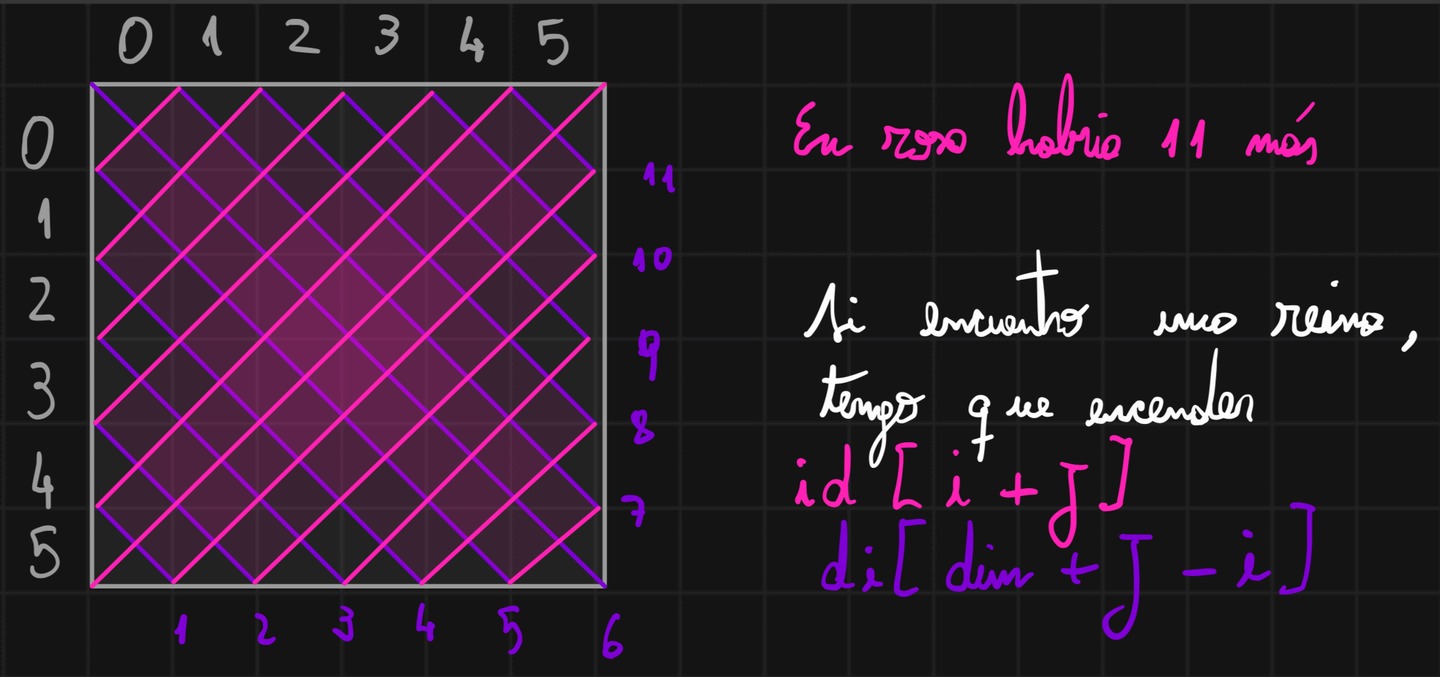 0 1 2 3 4 5
0
1
2
3
4
5
11
10
9
8
7
1 2 3 4 5 6
En rosa habría 11 más
Si encuentro una reina,
tengo que encender
id [ i + j ]
di [ dim + j - i ]